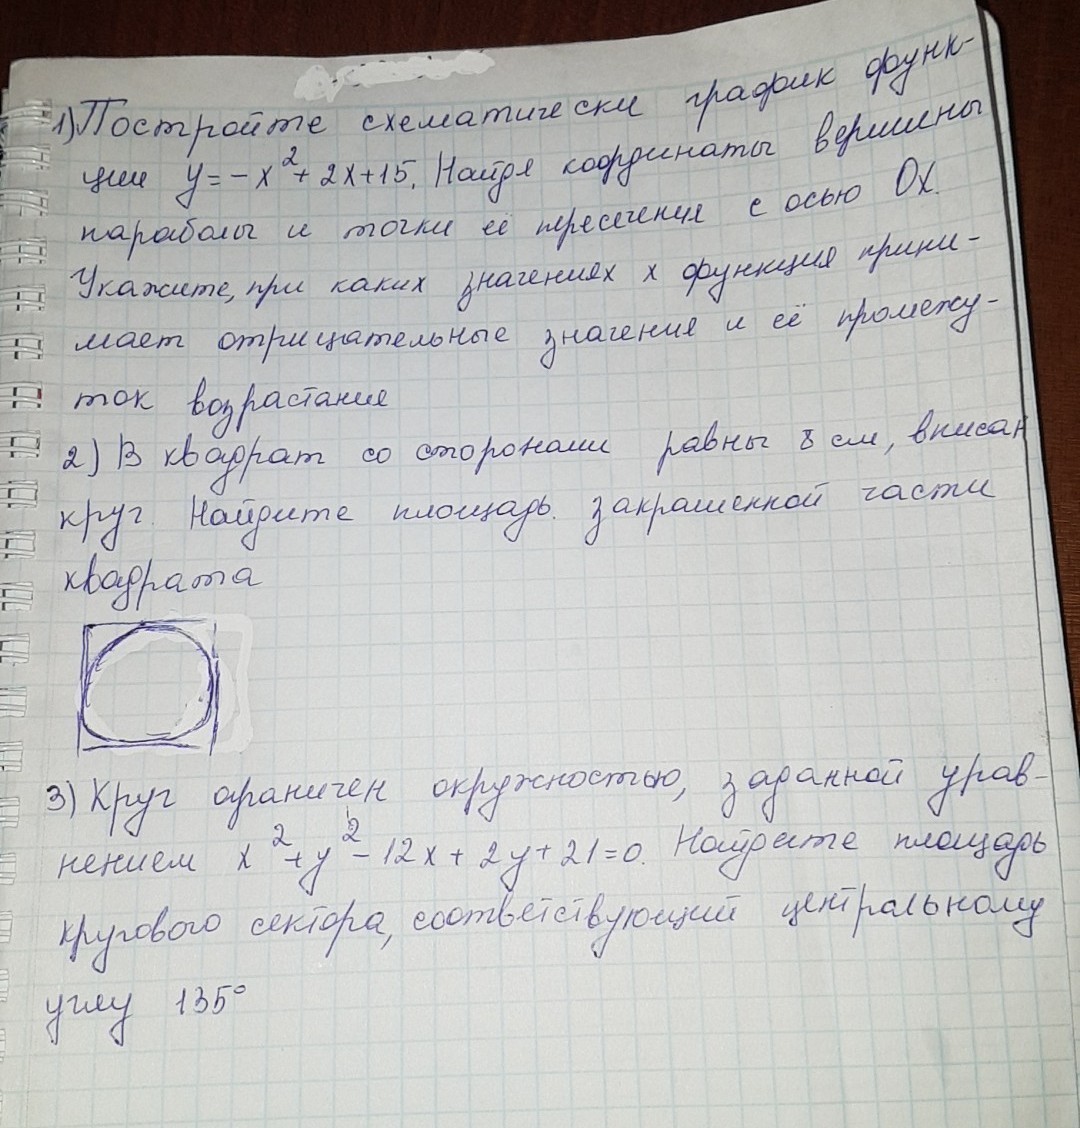 1) Постройте схематически график функ-
ции y = -x² + 2x + 15. Найдя координаты вершины
параболы и точки её пересечения с осью Ох.
Укажите, при каких значениях х функция прини-
мает отрицательные значение и её промежу-
ток возрастание
2) В квадрат со сторонами равны 8 см, вписан
круг. Найдите площадь закрашенной части
квадрата
3) Круг ограничен окружностью, заданной урав-
нением x² + y² - 12x + 2y + 21 = 0. Найдите площадь
кругового сектора, соответствующий центральному
углу 135°